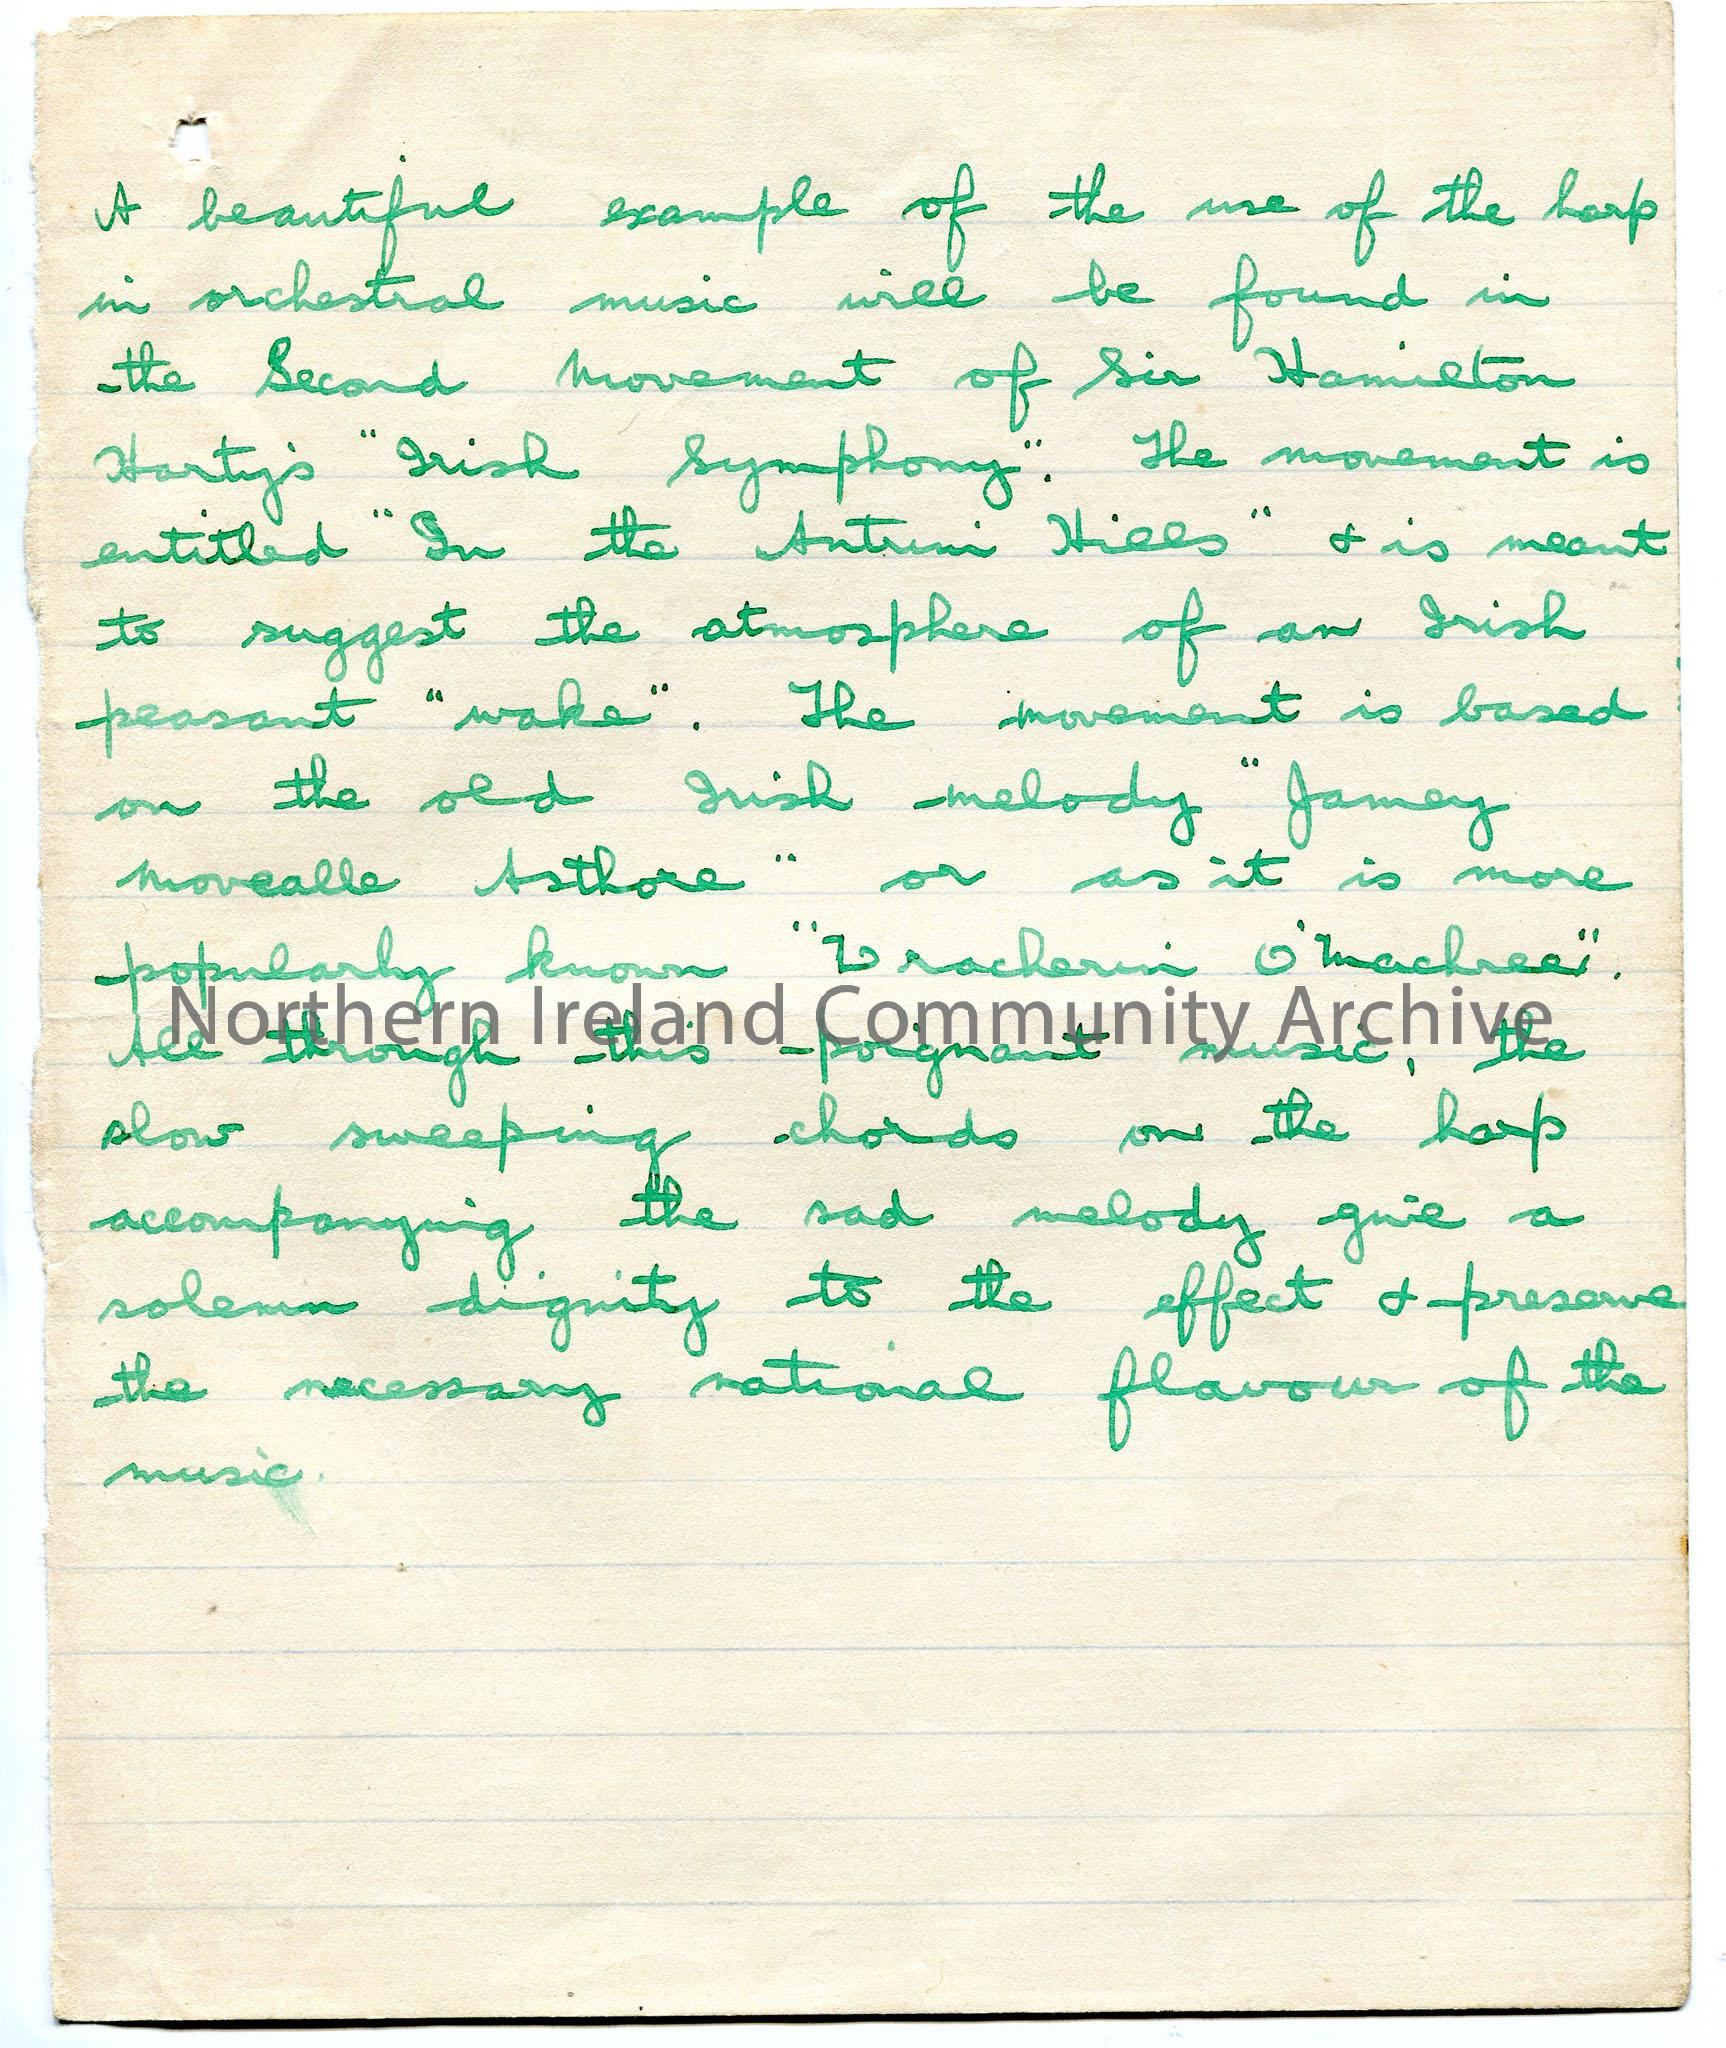 A beautiful example of the use of the harp
in orchestral music will be found in
the Second Movement of Sir Hamilton
Harty's "Irish Symphony". The movement is
entitled "In the Antrim Hills" & is meant
to suggest the atmosphere of an Irish
peasant "wake". The movement is based
on the old Irish melody "Jamey
Movealle Asthore" or as it is more
popularly known "Dracherin O'Machree".
Northern Ireland Community Archive
All through this poignant music, the
slow sweeping chords on the harp
accompanying the sad melody give a
solemn dignity to the effect & preserve
the necessary national flavour of the
music.